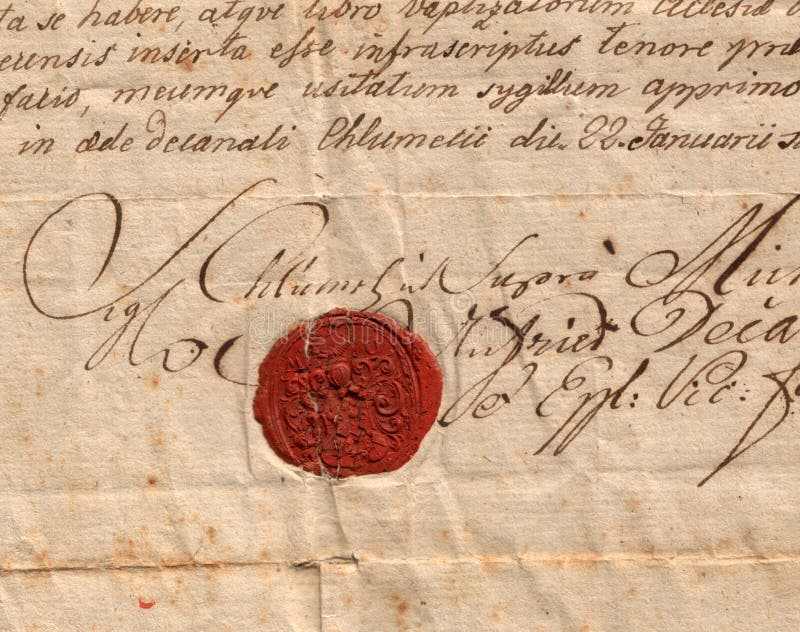 ta se habere, atqve libro Baptizatorum Ecclesiæ
erensis inserta esse infrascriptus tenore præ
fario, meumqve usitatum sygillum apprimo
in æde decanali Chlumecii die 22. Januarii
Chlumetii ut Supra
Sigl Decā
& Eppl: Vic:
dreamstime